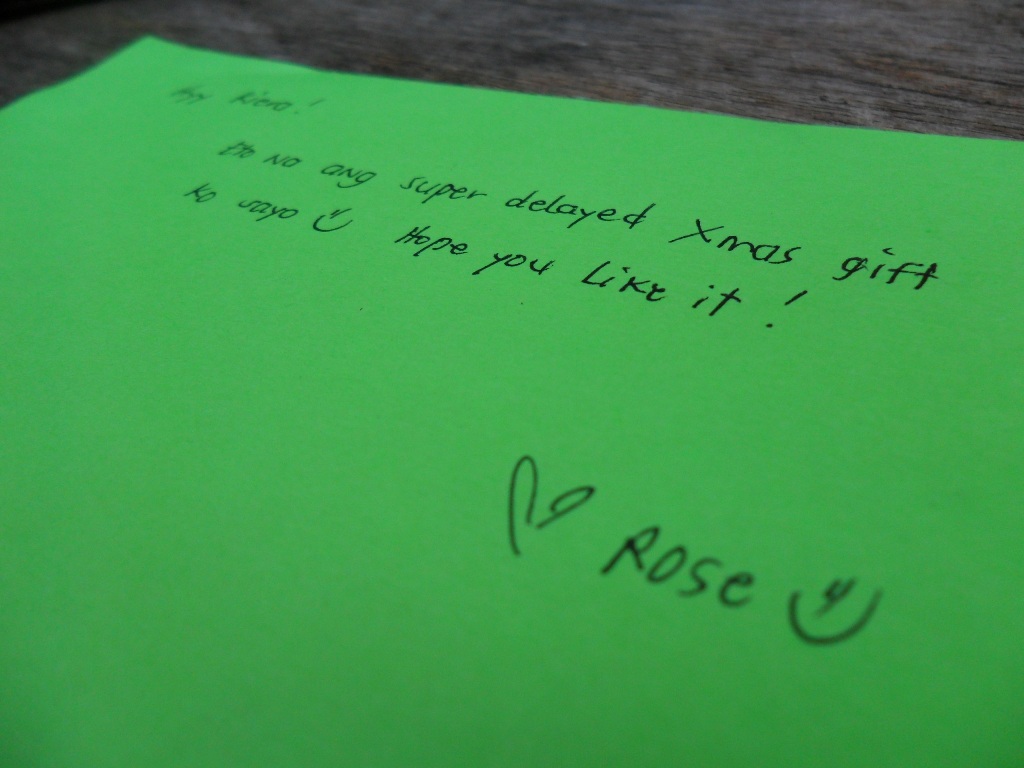 Hey Kiera!
Ito na ang super delayed Xmas gift
ko sayo Hope you like it!
Rose